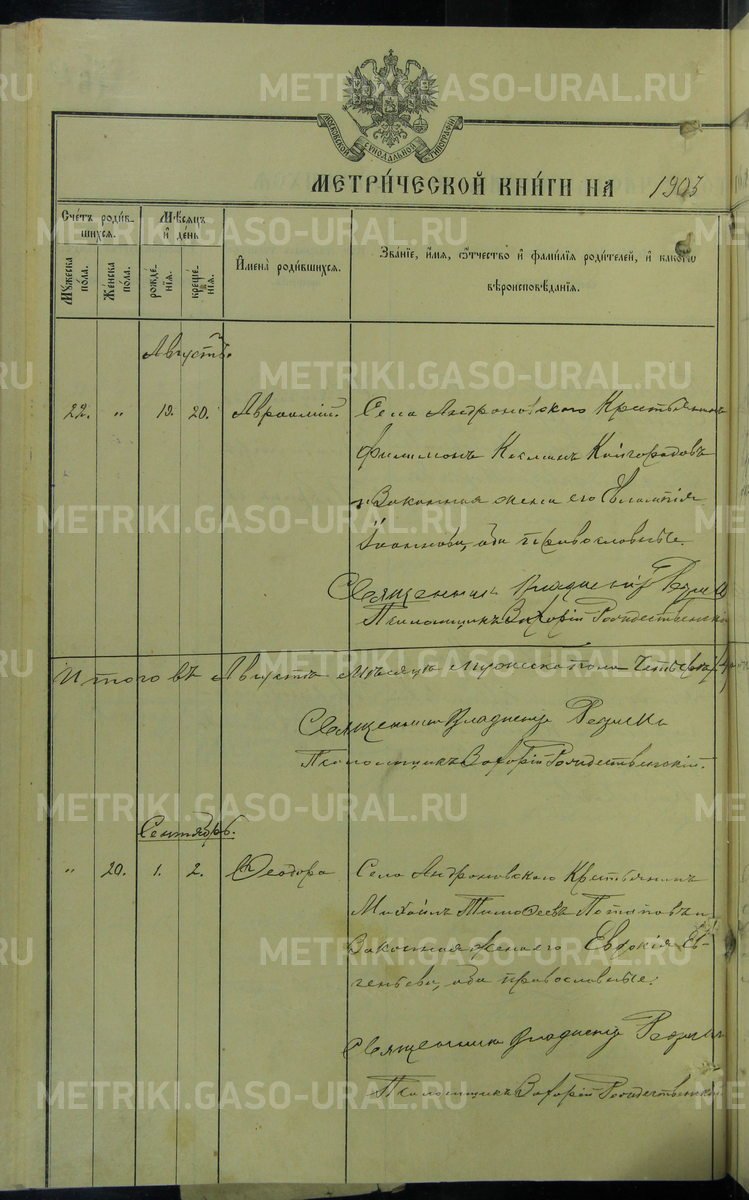 METRIKI.GASO-URAL.RU
МОСКОВСКОЙ СѴНОДАЛЬНОЙ ТИПОГРАФІИ
МЕТРИ́ЧЕСКОЙ КНИ́ГИ НА 1903
Сче́тъ роди́вшихся.
Мѣ́сяцъ и҆ де́нь
Мꙋ́жеска по́ла.
Же́нска по́ла.
рожде́нїѧ.
креще́нїѧ.
И҆мена̀ роди́вшихся.
Зва́нїе, и҆́мѧ, ѻ҆́тчество и҆ фами́лїѧ роди́телей, и҆ како́гѡ
вѣроисповѣ́данїѧ.
Августъ.
22. „ 19. 20. Авраамій. Села Андроновскаго Крестьянинъ
Филимонъ Кайгородовъ
и законная жена его Евлампія
Іоаннова, оба православные.
Священникъ Владиміръ
Псаломщикъ Захарій Рождественскій
Итого въ Августѣ мѣсяцѣ мужеска пола
Священникъ Владиміръ
Псаломщикъ Захарій Рождественскій.
Сентябрь.
„ 20. 1. 2. Ѳеодора Села Андроновскаго Крестьянинъ
Михаилъ Тимоѳеевъ Потаповъ и
Законная жена его Евдокія Ев-
геньева, оба православные.
Священникъ Владиміръ
Псаломщикъ Захарій Рождественскій